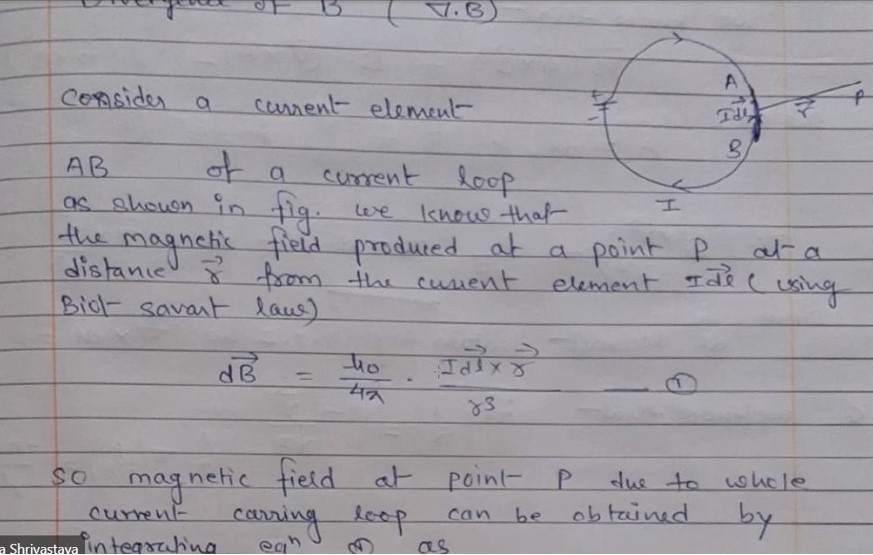 Divergence of B (∇.B)
Consider a current element
AB of a current loop
as shown in fig. we know that
the magnetic field produced at a point P at a
distance r⃗ from the current element Idl⃗ (using
Biot savart law)
dB⃗ = μ0/4π . Idl⃗ × r⃗ / r3 — ①
so magnetic field at point P due to whole
current carring loop can be obtained by
integrating eqn ① as
A
Idl⃗
B
r⃗
P
I
+
-
a Shrivastava